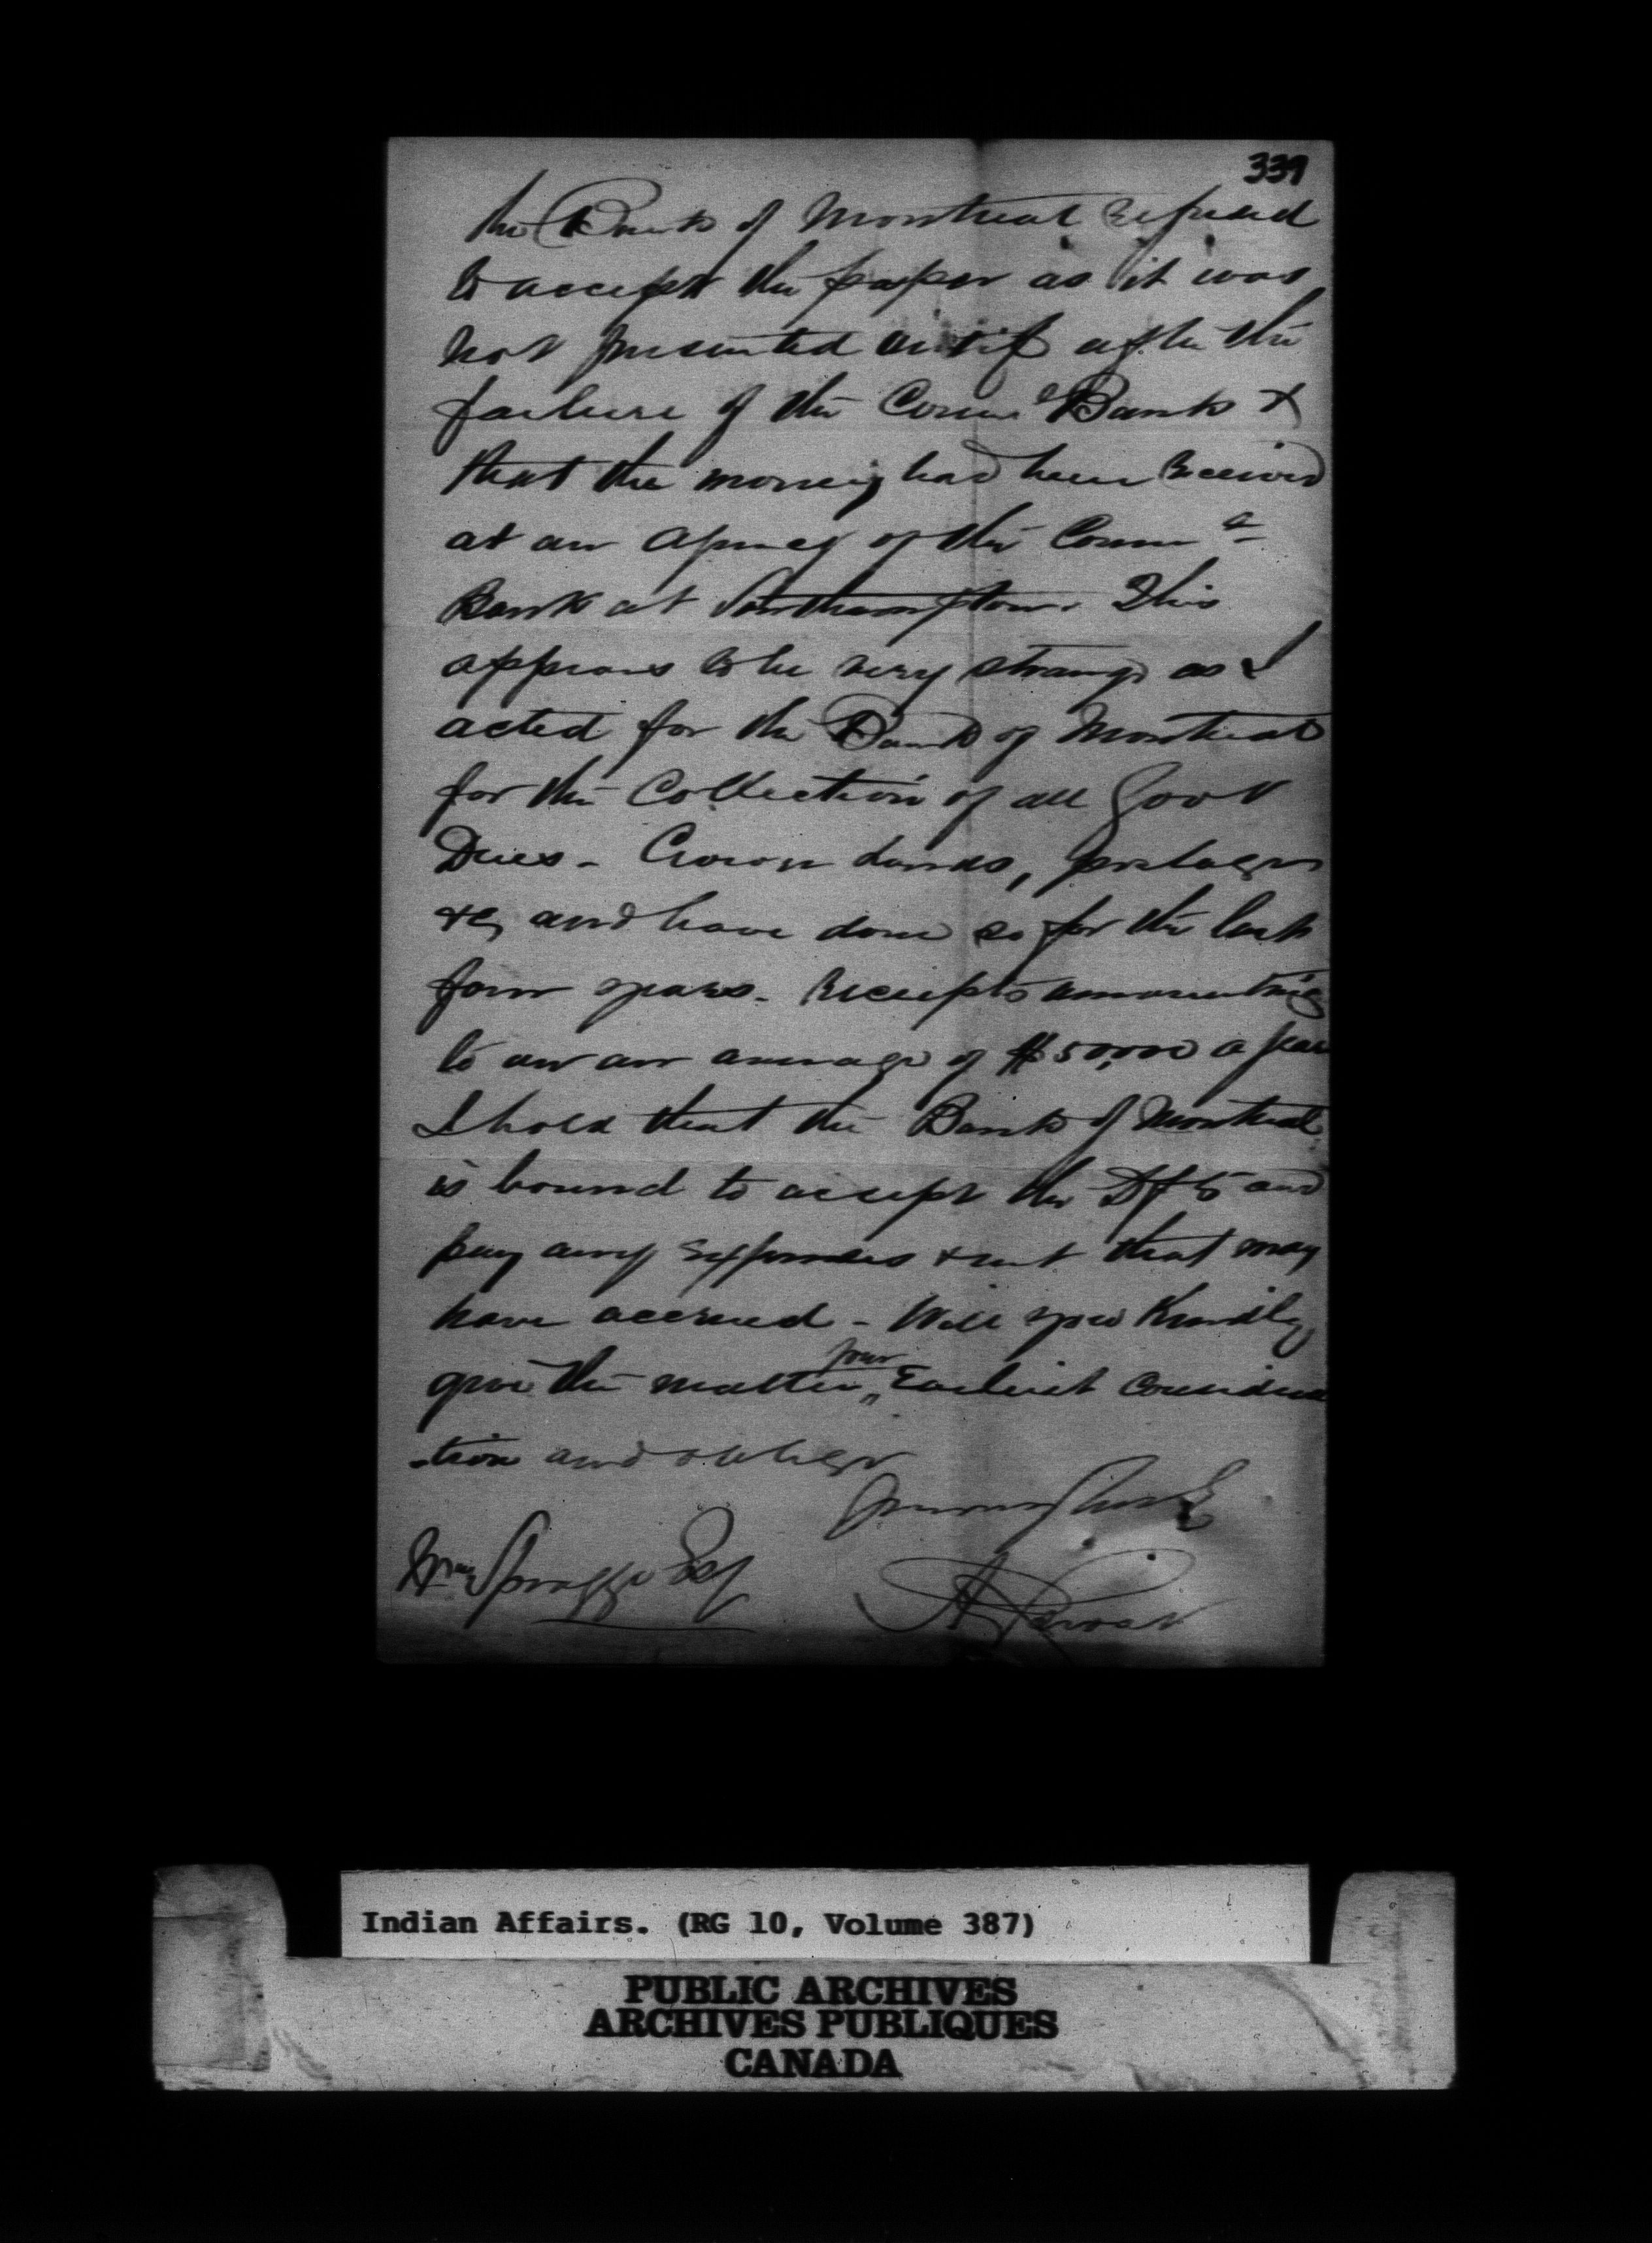 339
the Bank of Montreal refused
to accept the paper as it was
not presented until after the
failure of the Comm<sup>l</sup> Bank &
that the money had been received
at an agency of the Comm<sup>l</sup>
Bank at Southampton. This
appears to be very strange as I
acted for the Bank of Montreal
for the Collection of all Govt
Dues - Crown Lands, postages
&c, and have done so for the last
four years. Receipts amounting
to an an average of $50,000 a year
I hold that the Bank of Montreal
is bound to accept the Dfts and
pay any expenses & int that may
have accrued - Will you Kindly
your
give the matter " Earliest considera
-tion and oblige
Yours truly
Wm Spragge Esq
A Proudfoot
Indian Affairs. (RG 10, Volume 387)
PUBLIC ARCHIVES
ARCHIVES PUBLIQUES
CANADA